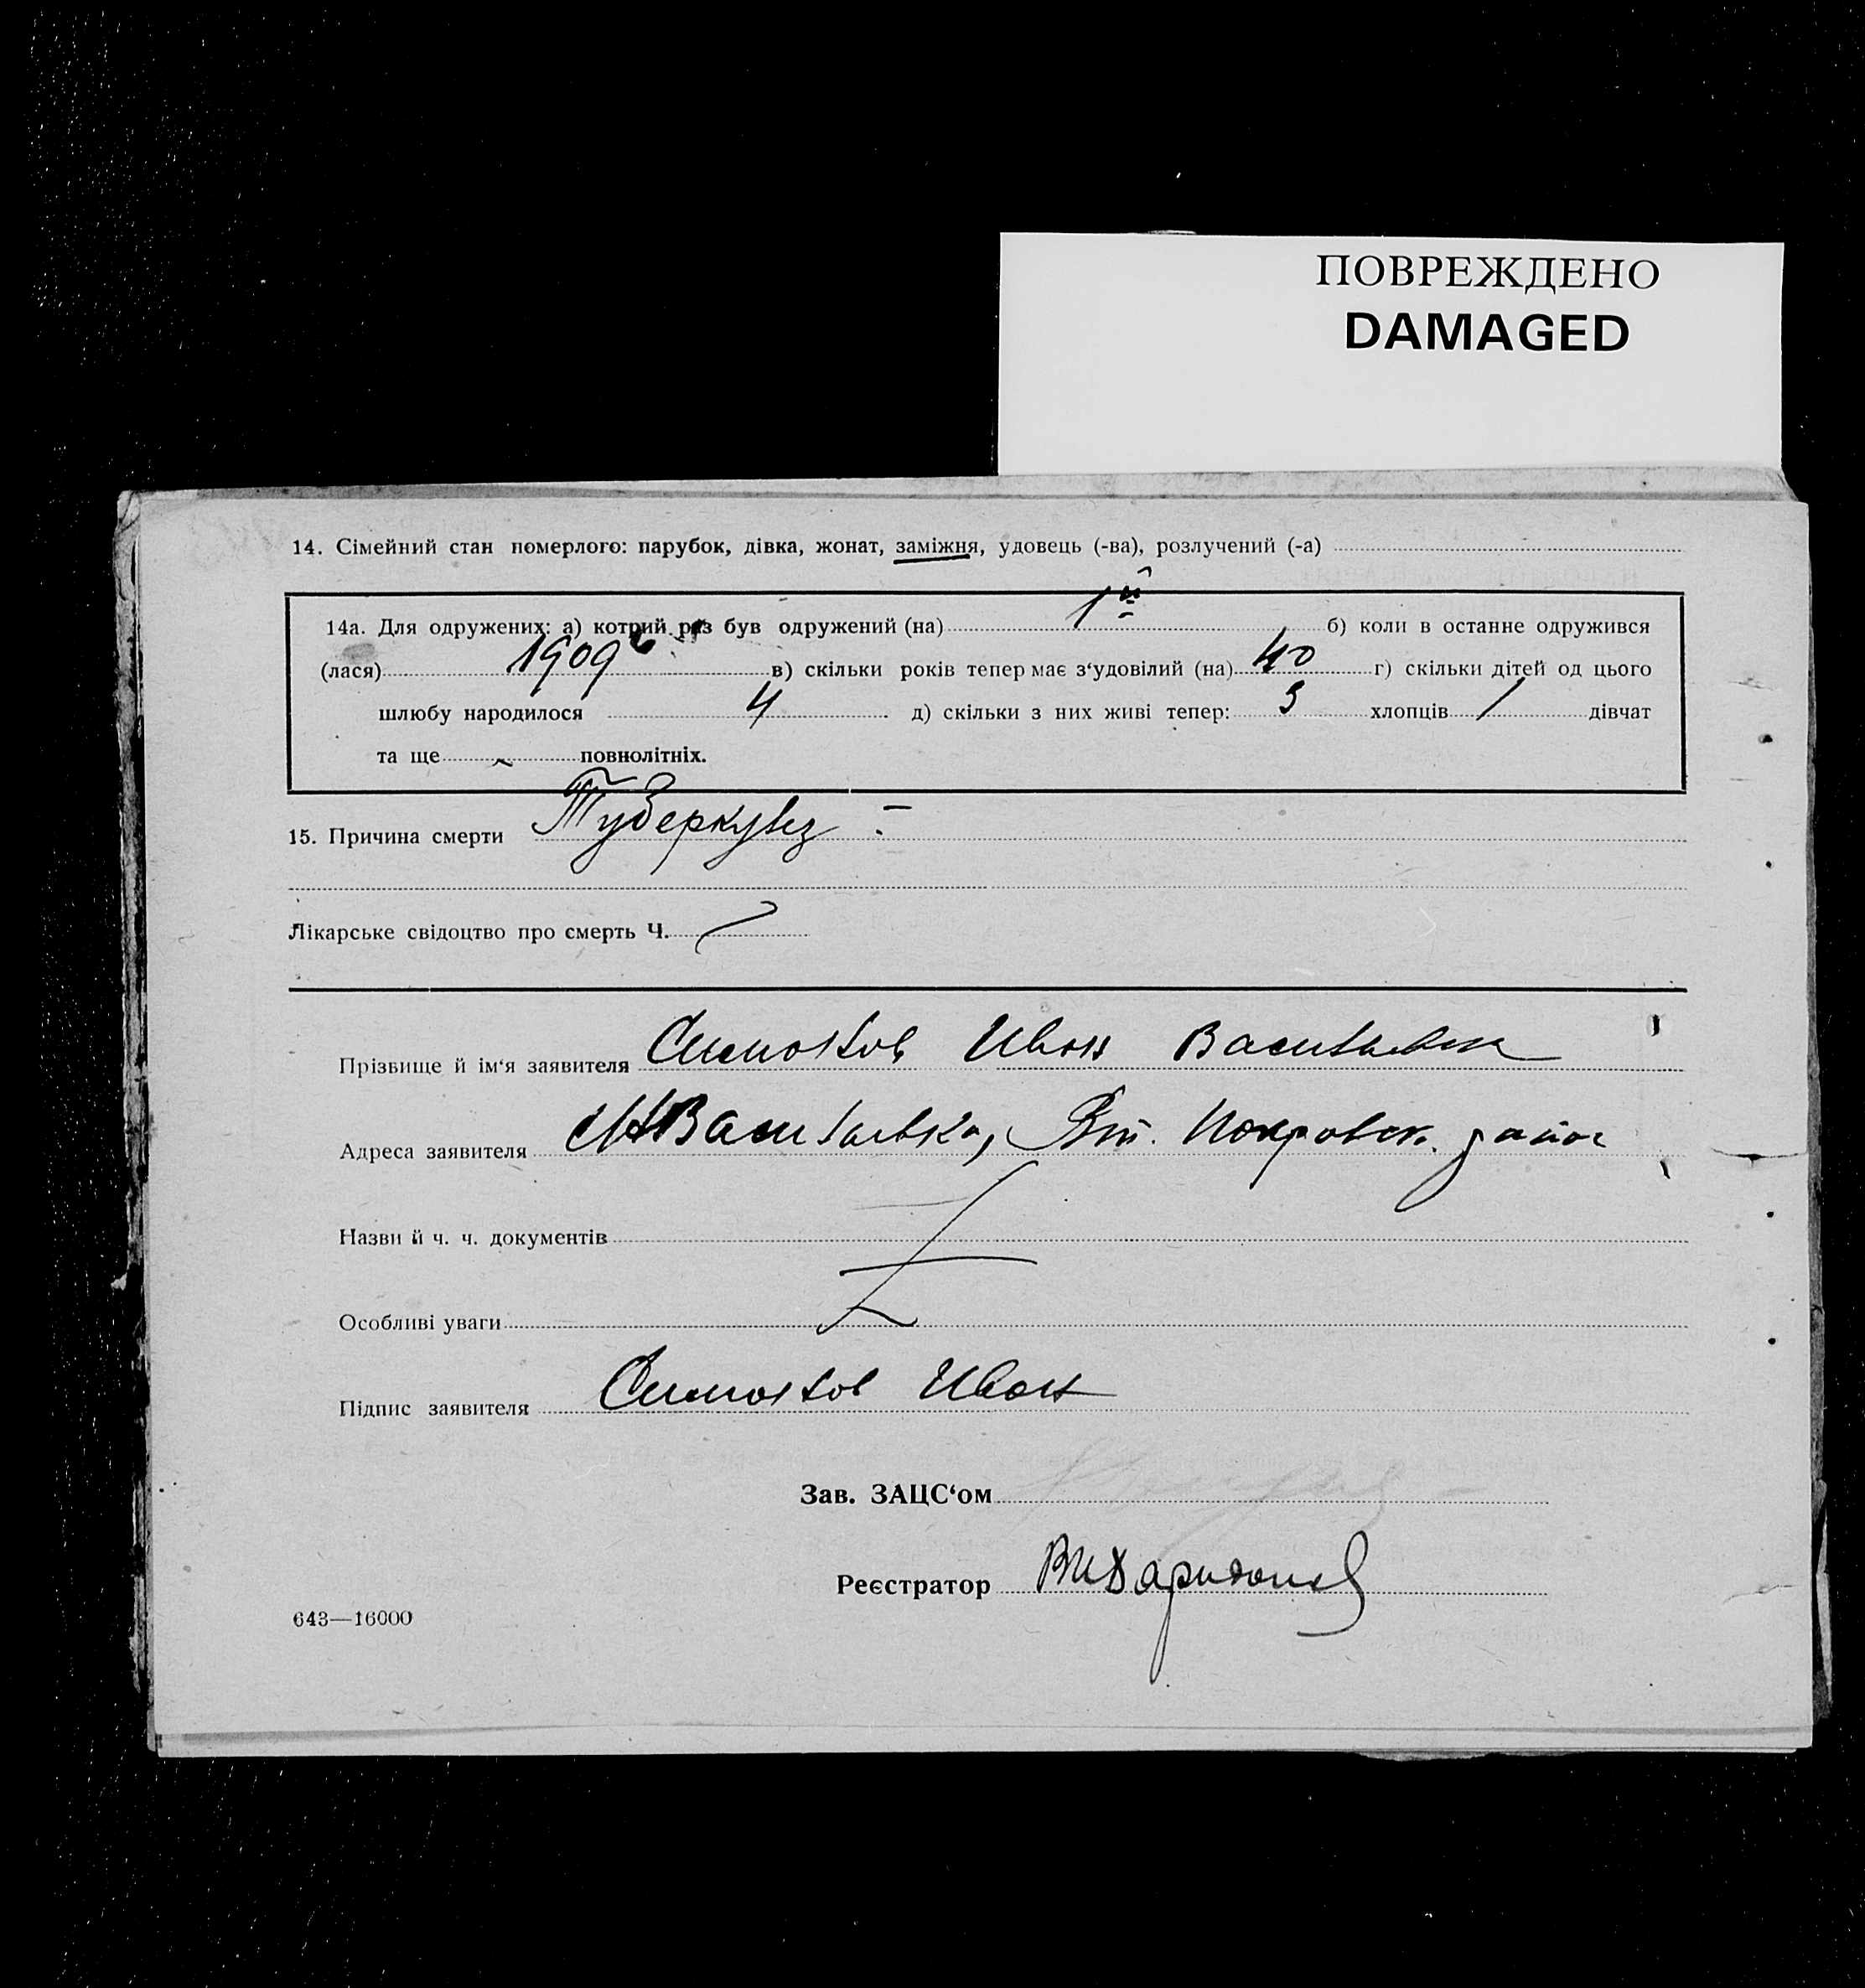 ПОВРЕЖДЕНО
DAMAGED
14. Сімейний стан померлого: парубок, дівка, жонат, заміжня, удовець (-ва), розлучений (-а)
14а. Для одружених: а) котрий раз був одружений (на) 1й б) коли в останне одружився
(лася) 1909 в) скільки років тепер має з‘удовілий (на) 40 г) скільки дітей од цього
шлюбу народилося 4 д) скільки з них живі тепер: 3 хлопців 1 дівчат
та ще повнолітніх.
15. Причина смерти Туберкулез
Лікарське свідоцтво про смерть Ч.
Прізвище й ім‘я заявителя Иван Васильевич
Адреса заявителя Васильевка, Покровск. район
Назви й ч. ч. документів
Особливі уваги
Підпис заявителя Иван
Зав. ЗАЦС‘ом
Реєстратор
643—16000